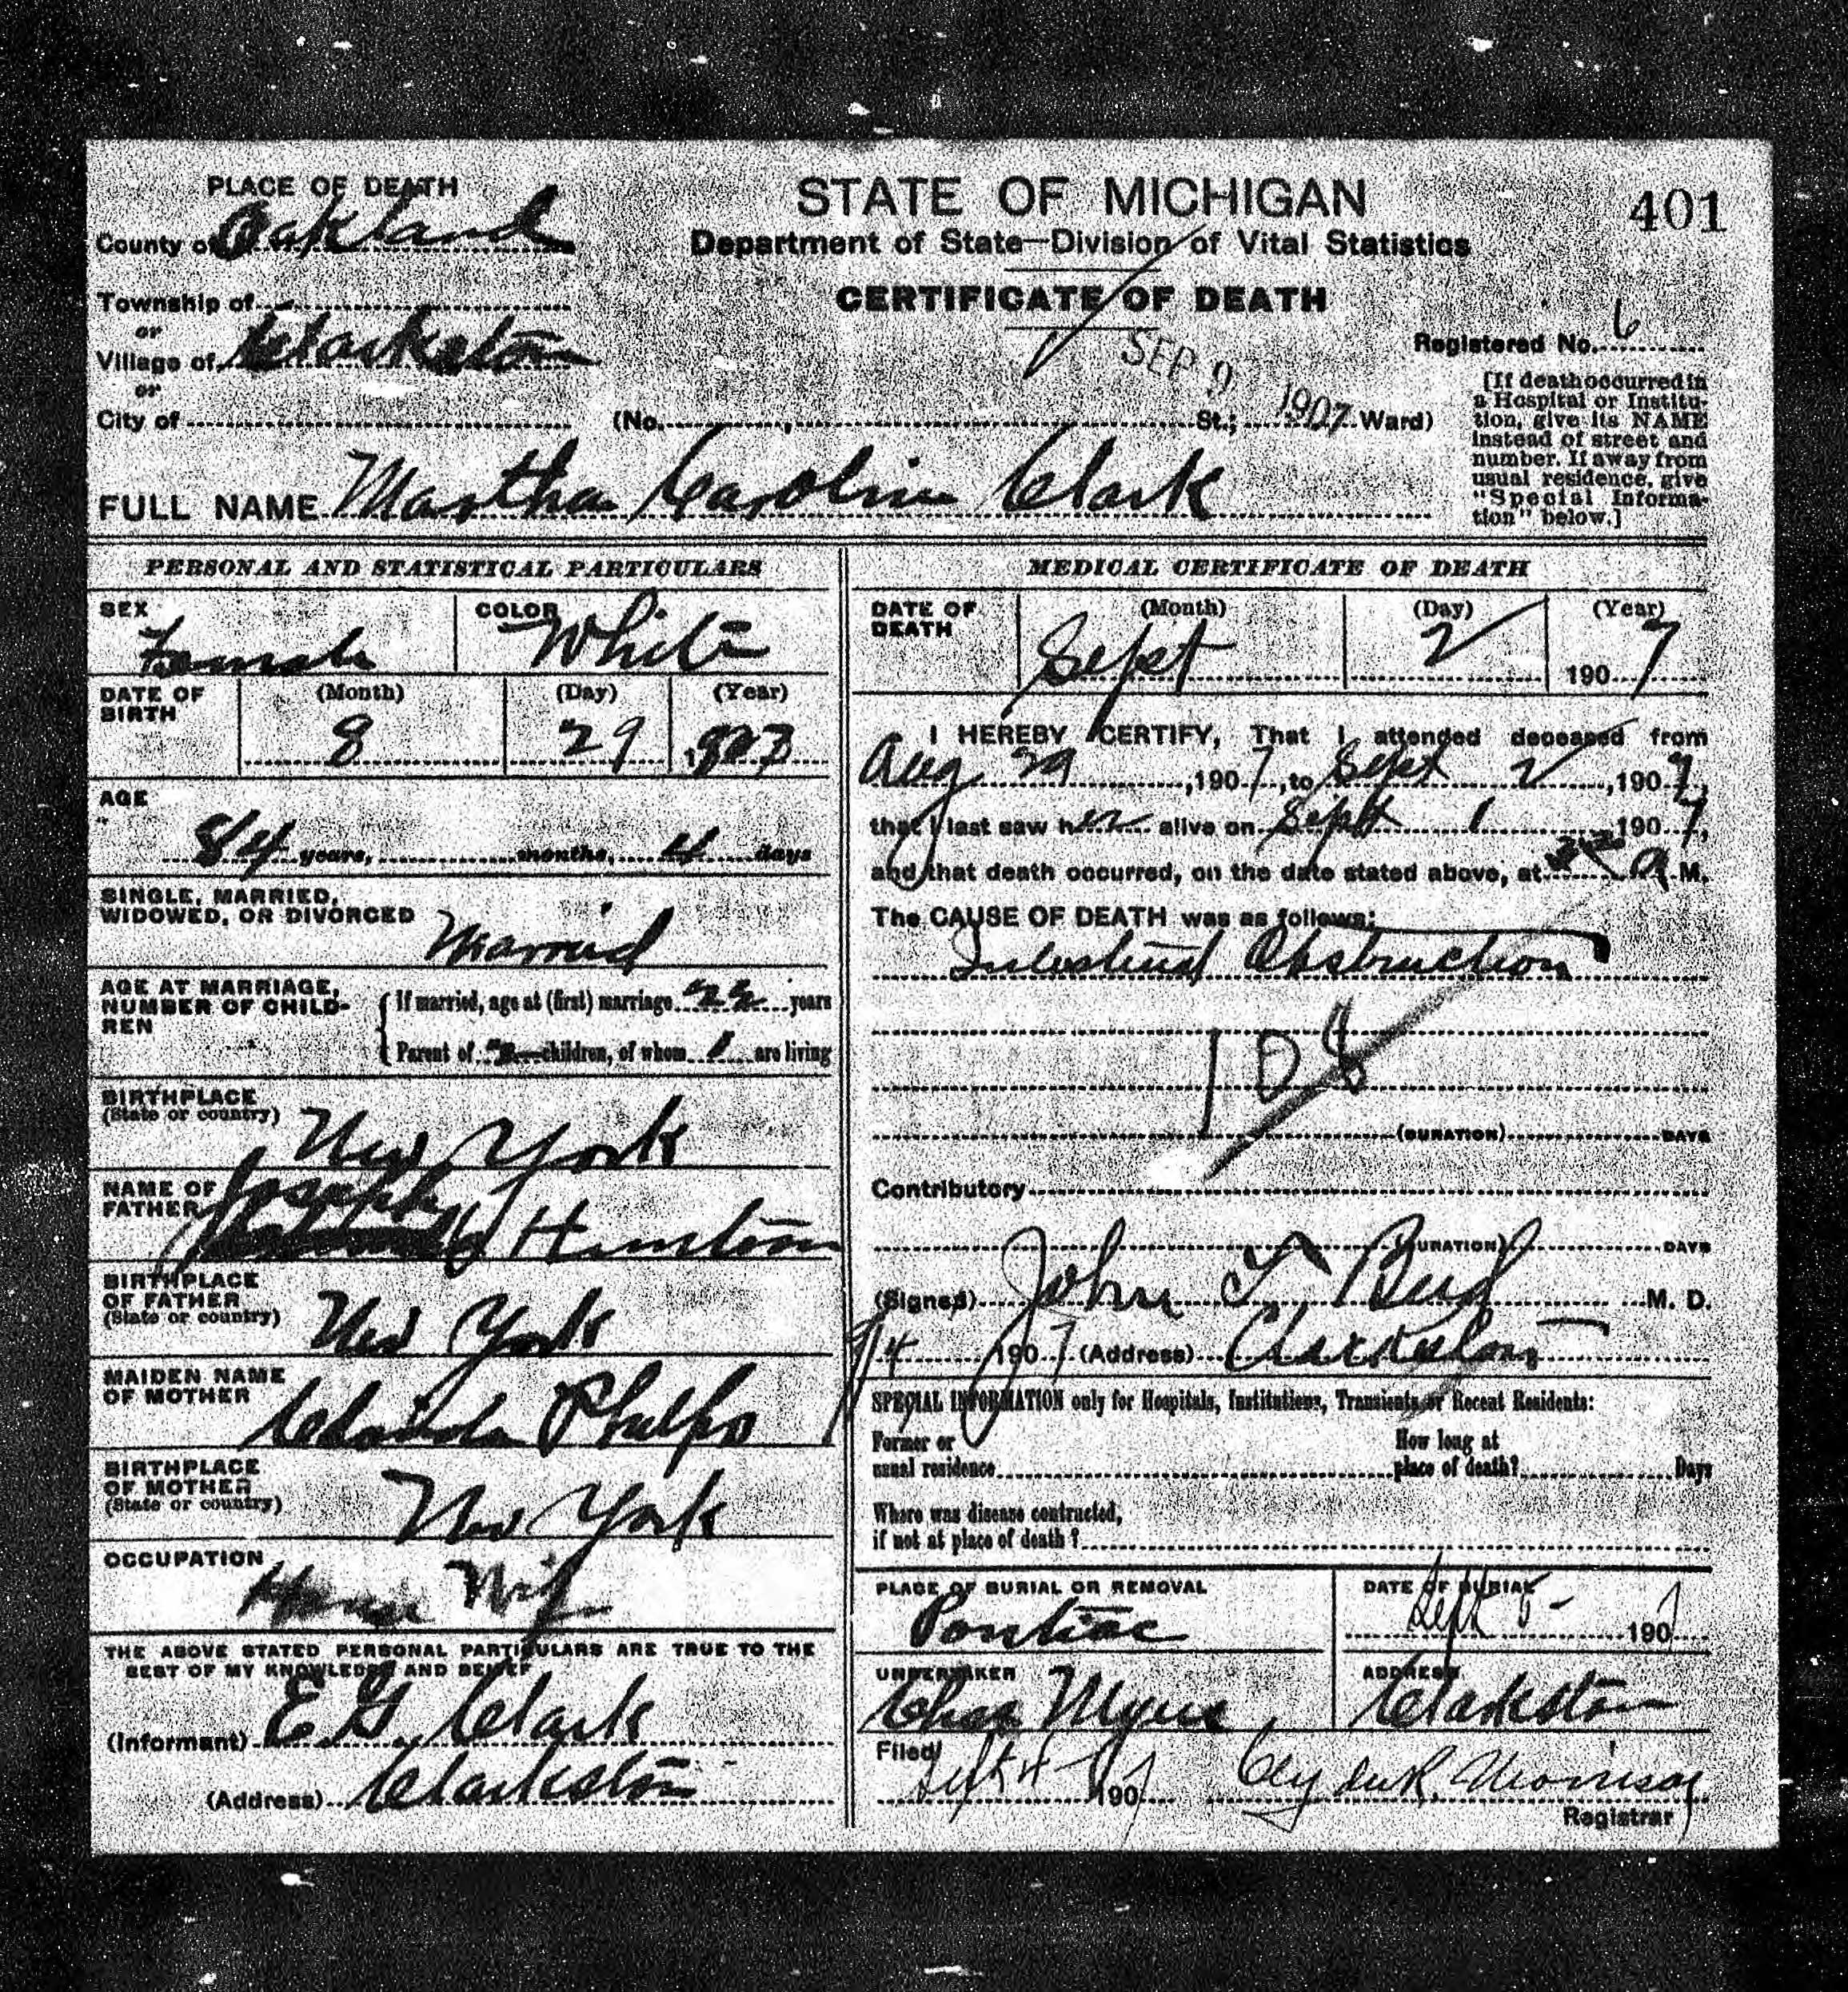 PLACE OF DEATH
County of Oakland
Township of
or
Village of Clarkston
or
City of
STATE OF MICHIGAN
Department of State—Division of Vital Statistics
CERTIFICATE OF DEATH
401
Registered No. 6
SEP 9 1907
(No. , St.; Ward)
[If death occurred in
a Hospital or Institu-
tion, give its NAME
instead of street and
number. If away from
usual residence, give
"Special Informa-
tion" below.]
FULL NAME Martha Caroline Clark
PERSONAL AND STATISTICAL PARTICULARS
SEX Female
COLOR White
DATE OF BIRTH
(Month) (Day) (Year)
8 29 1823
AGE
84 years, months, 4 days
SINGLE, MARRIED,
WIDOWED, OR DIVORCED Married
AGE AT MARRIAGE,
NUMBER OF CHILD-
REN
If married, age at (first) marriage 22 years
Parent of children, of whom 1 are living
BIRTHPLACE
(State or country) New York
NAME OF
FATHER Joseph Hunton
BIRTHPLACE
OF FATHER
(State or country) New York
MAIDEN NAME
OF MOTHER Phelps
BIRTHPLACE
OF MOTHER
(State or country) New York
OCCUPATION House Wife
THE ABOVE STATED PERSONAL PARTICULARS ARE TRUE TO THE
BEST OF MY KNOWLEDGE AND BELIEF
(Informant) E G Clark
(Address) Clarkston
MEDICAL CERTIFICATE OF DEATH
DATE OF
DEATH
(Month) (Day) (Year)
Sept 2 1907
I HEREBY CERTIFY, That I attended deceased from
Aug 29, 1907, to Sept 2, 1907,
that I last saw her alive on Sept 1 1907,
and that death occurred, on the date stated above, at A M.
The CAUSE OF DEATH was as follows:
Intestinal Obstruction
108
(DURATION) DAYS
Contributory
(DURATION) DAYS
(Signed) John T M. D.
9/4 1907 (Address) Clarkston
SPECIAL INFORMATION only for Hospitals, Institutions, Transients or Recent Residents:
Former or
usual residence
How long at
place of death? Days
Where was disease contracted,
if not at place of death?
PLACE OF BURIAL OR REMOVAL
Pontiac
DATE OF BURIAL
Sept 5 - 1907
UNDERTAKER
Chas Myers
ADDRESS
Clarkston
Filed
Sept 4 1907 Morrison
Registrar